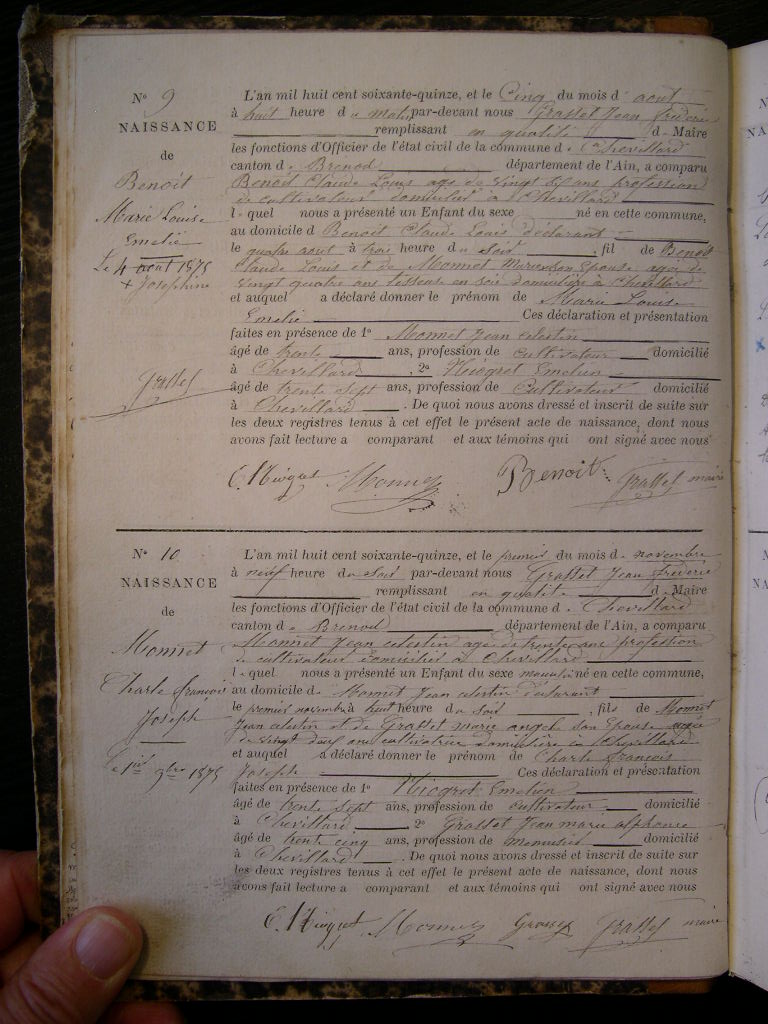 N° 9
NAISSANCE
de
Benoit
Marie Louise
Emelie
Le 4 aout 1875
+ Josephine
Grasset
L'an mil huit cent soixante-quinze, et le Cinq du mois d' aout
à huit heure du matin par-devant nous Grasset Jean Frédéric
remplissant en qualité d. Maire
les fonctions d'Officier de l'état civil de la commune d. Chevillard
canton d. Brenod département de l'Ain, a comparu
Benoit Claude Louis age de vingt six ans profession
de cultivateur domicilié a Chevillard
l. quel nous a présenté un Enfant du sexe né en cette commune,
au domicile d Benoit Claude Louis déclarant
le quatre aout à trois heure du Soir, fil de Benoit
Claude Louis et de Monnet son Epouse agée de
vingt quatre ans tisseuse en soie domiciliée a Chevillard
et auquel a déclaré donner le prénom de Marie Louise
Emelie Ces déclaration et présentation
faites en présence de 1° Monnet Jean Celestin
âgé de trente ans, profession de cultivateur domicilié
à Chevillard, 2° Nicgret Emelien
âgé de trente sept ans, profession de Cultivateur domicilié
à Chevillard. De quoi nous avons dressé et inscrit de suite sur
les deux registres tenus à cet effet le présent acte de naissance, dont nous
avons fait lecture a comparant et aux témoins qui ont signé avec nous
Monnet Benoit Grasset maire
N° 10
NAISSANCE
de
Monnet
Charle françois
Joseph
Le 1er 9bre 1875
L'an mil huit cent soixante-quinze, et le premier du mois d. novembre
à neuf heure du Soir par-devant nous Grasset Jean Frédéric
remplissant en qualité d. Maire
les fonctions d'Officier de l'état civil de la commune d. Chevillard
canton d. Brenod département de l'Ain, a comparu
Monnet Jean celestin agé de trente ans profession
de cultivateur domicilié a Chevillard
l. quel nous a présenté un Enfant du sexe masculin né en cette commune,
au domicile d. Monnet Jean celestin déclarant
le premier novembre à huit heure du soir, fils de Monnet
Jean celestin et de Grasset marie angele son Epouse agée
de vingt deux ans cultivatrice domiciliée a Chevillard
et auquel a déclaré donner le prénom de Charle françois
Joseph Ces déclaration et présentation
faites en présence de 1° Nicgret Emelien
âgé de trente sept ans, profession de cultivateur domicilié
à Chevillard, 2° Grasset Jean marie alphonse
âgé de trente cinq ans, profession de menuisier domicilié
à Chevillard. De quoi nous avons dressé et inscrit de suite sur
les deux registres tenus à cet effet le présent acte de naissance, dont nous
avons fait lecture a comparant et aux témoins qui ont signé avec nous
Monnet Grasset Grasset maire